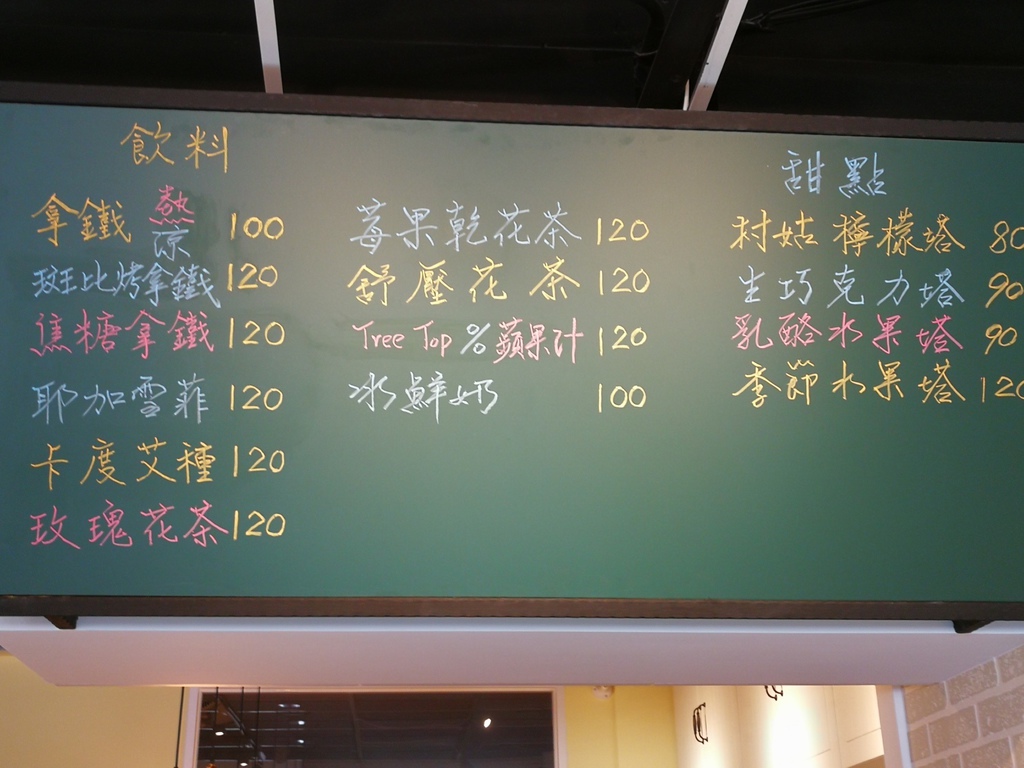 飲料
拿鐵 熱 涼 100
斑比烤拿鐵 120
焦糖拿鐵 120
耶加雪菲 120
卡度艾種 120
玫瑰花茶 120
莓果乾花茶 120
舒壓花茶 120
Tree Top % 蘋果汁 120
冰鮮奶 100
甜點
村姑檸檬塔 80
生巧克力塔 90
乳酪水果塔 90
季節水果塔 120